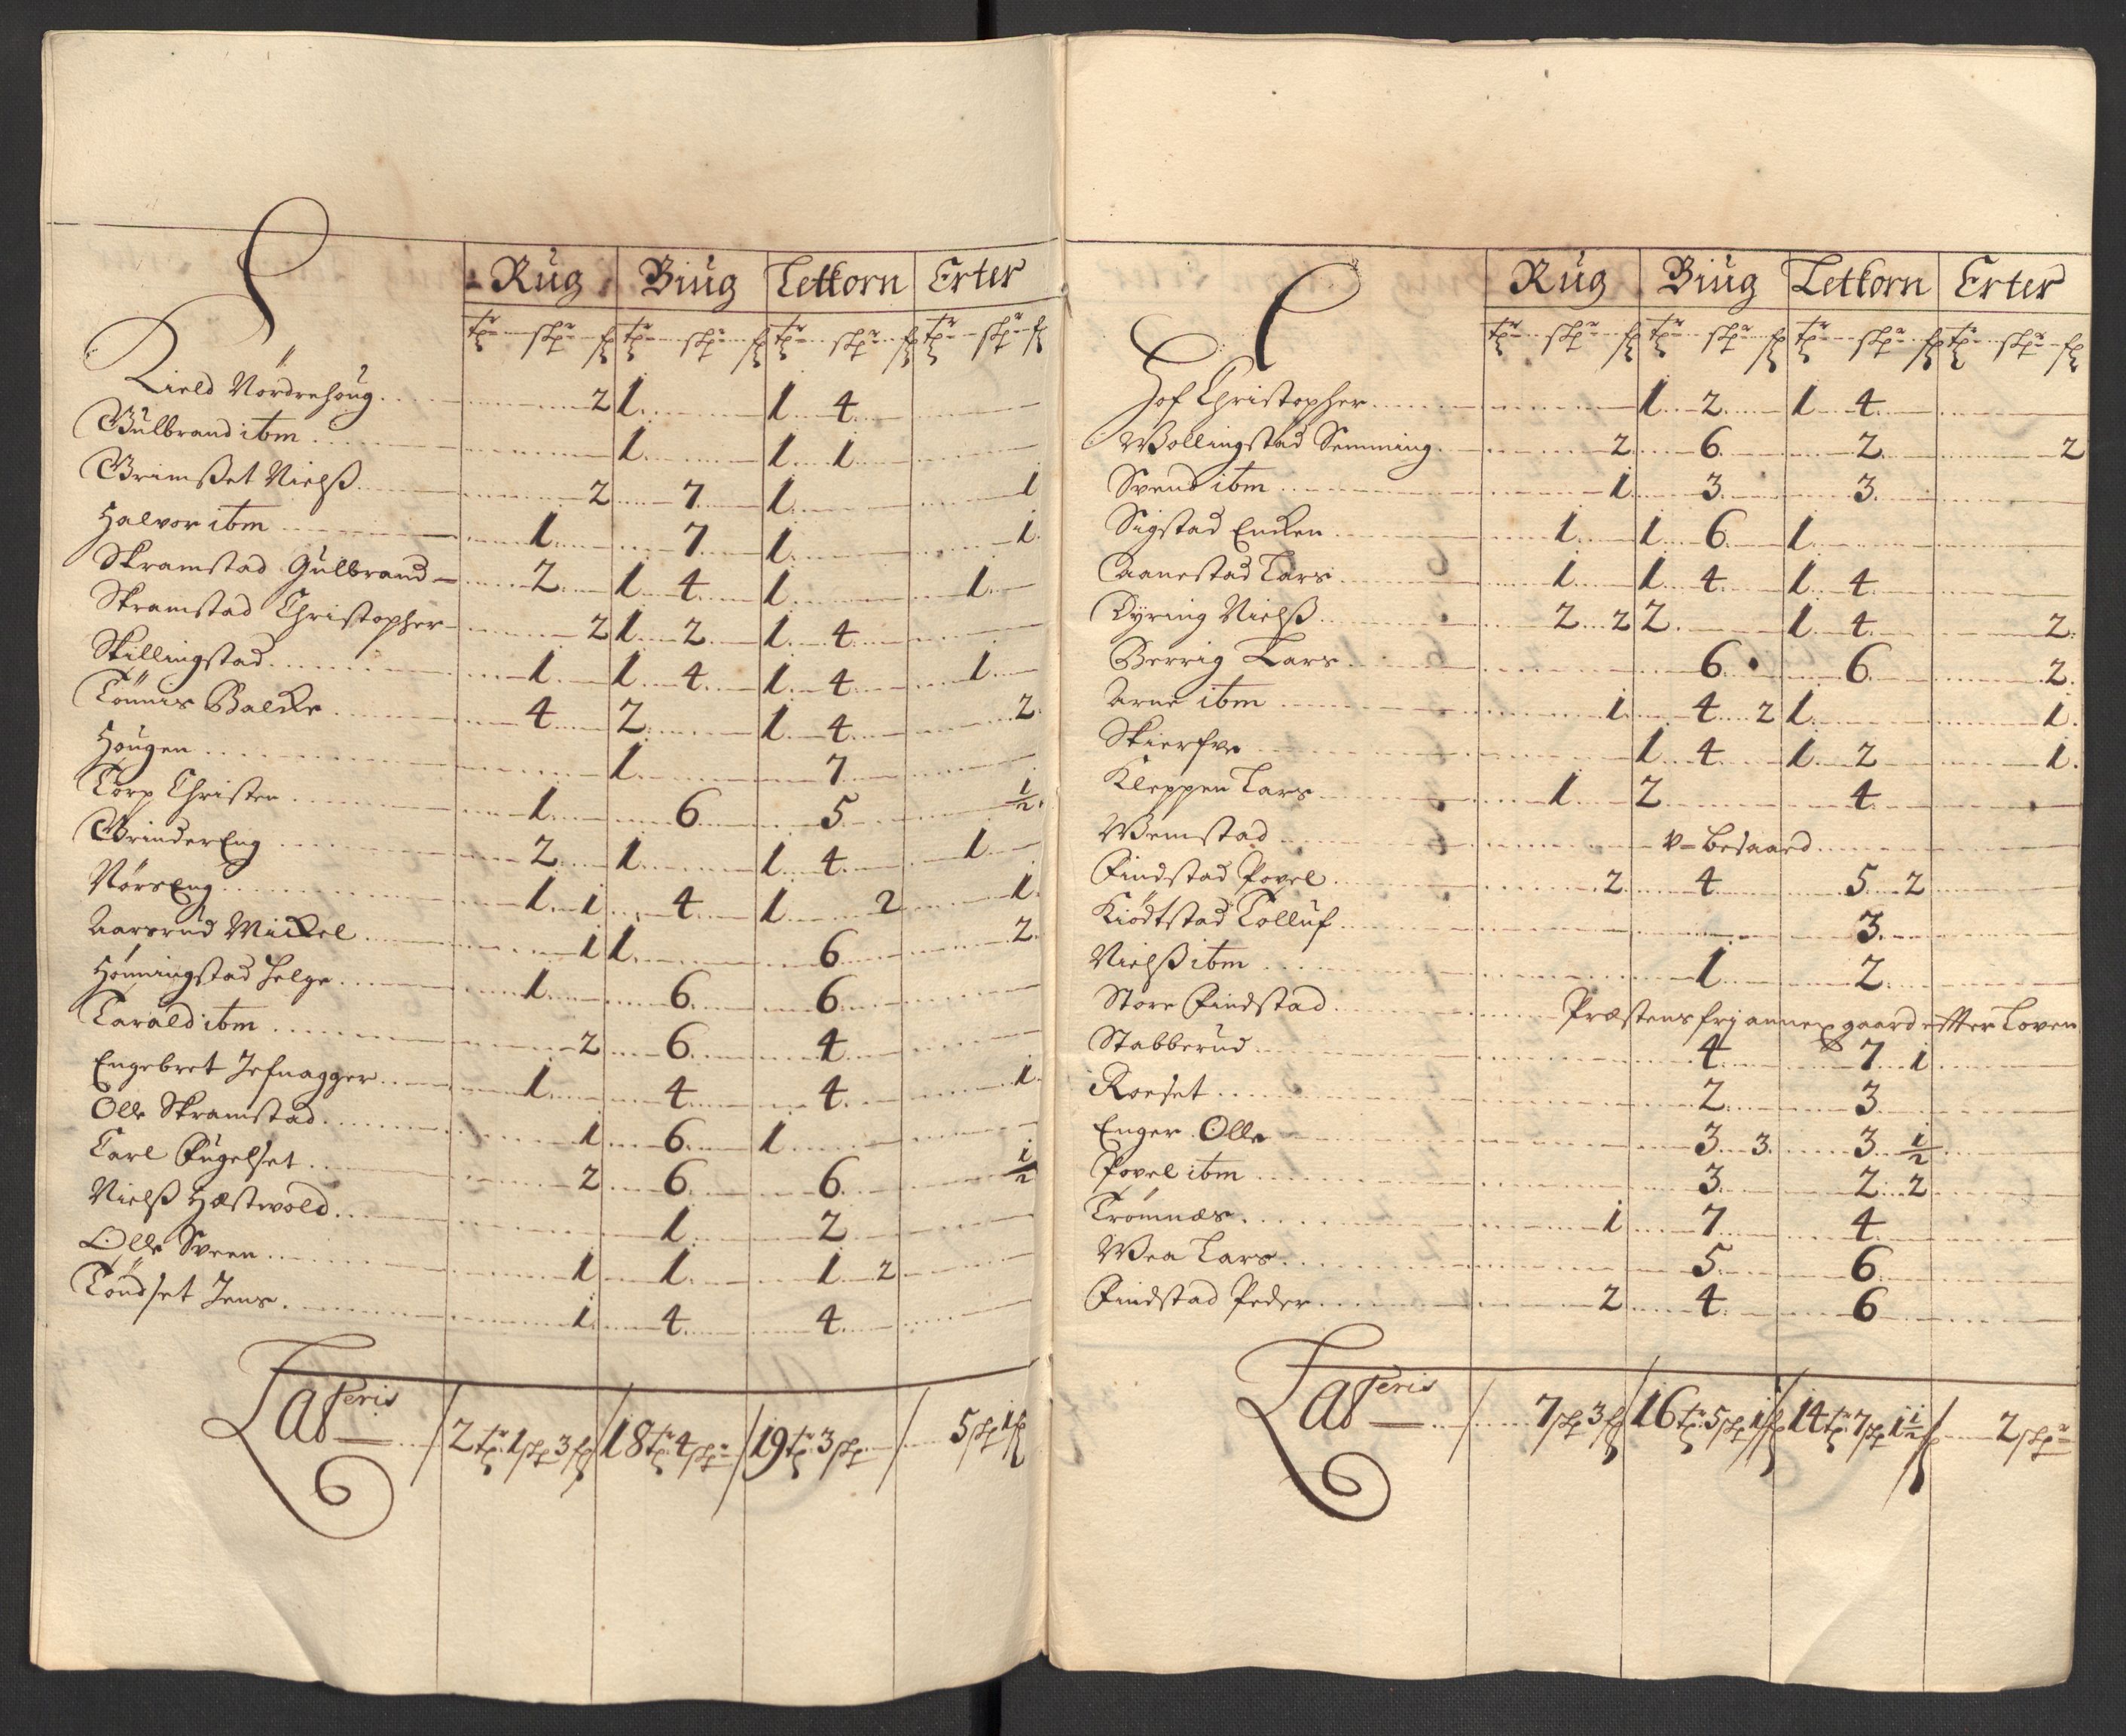 Rug Biug Lettkorn Erter
tr skpr f tr skpr f tr skpr f tr skpr f
Kield Nordrehoug 2 1 1 4
Gulbrand ibm 1 1 1
Grimsset Nielß 2 7 1 1
Halvor ibm 1 7 1 1
Skramstad Gulbrand 2 1 4 1 1
Skramstad Christopher 2 1 2 1 4
Skillingstad 1 1 4 1 4 1
Tönnis Balcke 4 2 1 4 2
Hougen 1 7
Torp Christen 1 6 5 1/2
GrinderEng 2 1 1 4 1
NorsEng 1 1 4 1 2 1
Aarsrud Mickel 1 1 6 2
Honningstad Helge 1 6 6
Tarald ibm 2 6 4
Engebret Jefnagger 1 4 4 1
Olle Skramstad 1 6 1
Carl Fugelset 2 6 6 1/2
Nielß Hæstwold 1 2
Olle Sveen 1 1 1 2
Töndset Jens 1 4 4
Lateris 2 tr 1 skp 3 f 18 tr 4 skpr 19 tr 3 skp 5 skp 1 f
Rug Biug Lettkorn Erter
tr skpr f tr skpr f tr skpr f tr skpr f
Hof Christopher 1 2 1 4
Wollingstad Semming 2 6 2 2
Svend ibm 1 3 3
Sigstad Encken 1 1 6 1
Aanestad Lars 1 1 4 1 4
Dyring Nielß 2 2 2 1 4 2
Berrig Lars 6 6 2
Arne ibm 1 4 2 1 1
Skierfve 1 4 1 2 1
Kleppen Lars 1 2 4
Wemstad u-besaaed
Findstad Povel 2 4 5 2
Kiödtstad Tolluf 3
Nielß ibm 1 2
Store Findstad Præstens fri annex gaard efter Loven
Stabberud 4 7 1
Roeset 2 3
Enger Olle 3 3 3 1/2
Povel ibm 3 2 2
Tromnæs 1 7 4
Wea Lars 5 6
Findstad Peder 2 4 6
Lateris 7 skp 3 f 16 tr 5 skp 1 f 14 tr 7 skp 1 1/2 f 2 skpr